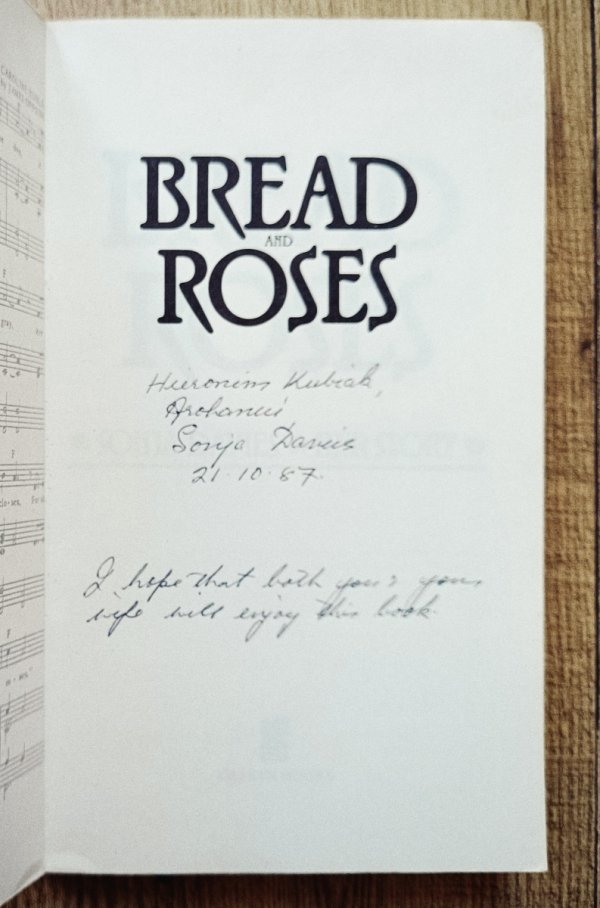 BREAD
AND
ROSES
Hieronim Kubiak,
Arohanui
Sonja Davies
21·10·87.
I hope that both you & your
wife will enjoy this book.